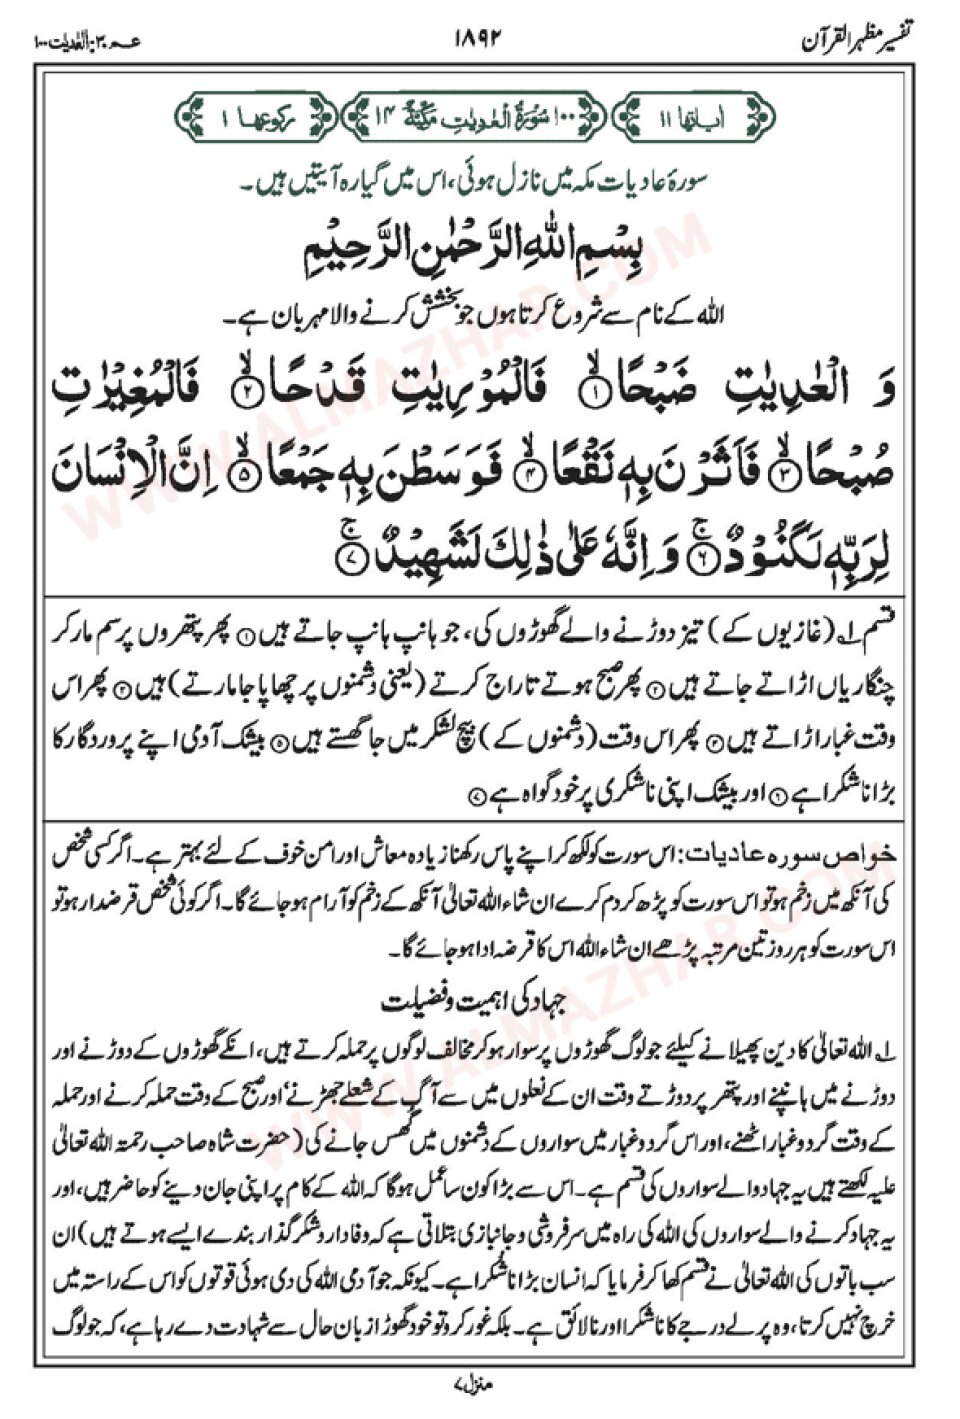 تفسیر مظہر القرآن
۱۸۹۲
عم ۳۰: العٰدیٰت ۱۰۰
اٰیاتھا ۱۱
۱۰۰ سُوْرَةُ الْعٰدِیٰتِ مَکِّیَّةٌ ۱۴
رکوعھا ۱
سورۂ عادیات مکہ میں نازل ہوئی، اس میں گیارہ آیتیں ہیں۔
بِسْمِ اللهِ الرَّحْمٰنِ الرَّحِیْمِ
اللہ کے نام سے شروع کرتا ہوں جو بخشش کرنے والا مہربان ہے۔
وَ الْعٰدِیٰتِ ضَبْحًا ۙ﴿۱﴾ فَالْمُوْرِیٰتِ قَدْحًا ۙ﴿۲﴾ فَالْمُغِیْرٰتِ
صُبْحًا ۙ﴿۳﴾ فَاَثَرْنَ بِهٖ نَقْعًا ۙ﴿۴﴾ فَوَسَطْنَ بِهٖ جَمْعًا ۙ﴿۵﴾ اِنَّ الْاِنْسَانَ
لِرَبِّهٖ لَکَنُوْدٌ ۚ﴿۶﴾ وَ اِنَّهٗ عَلٰی ذٰلِكَ لَشَهِیْدٌ ۚ﴿۷﴾
قسم ۱؎ (غازیوں کے) تیز دوڑنے والے گھوڑوں کی، جو ہانپ ہانپ جاتے ہیں ﴿۱﴾ پھر پتھروں پر سم مار کر
چنگاریاں اڑاتے جاتے ہیں ﴿۲﴾ پھر صبح ہوتے تاراج کرتے (یعنی دشمنوں پر چھاپا جا مارتے) ہیں ﴿۳﴾ پھر اس
وقت غبار اڑاتے ہیں ﴿۴﴾ پھر اس وقت (دشمنوں کے) بیچ لشکر میں جا گھستے ہیں ﴿۵﴾ بیشک آدمی اپنے پروردگار کا
بڑا ناشکرا ہے ﴿۶﴾ اور بیشک اپنی ناشکری پر خود گواہ ہے ﴿۷﴾
خواص سورہ عادیات: اس سورت کو لکھ کر اپنے پاس رکھنا زیادہ معاش اور امن خوف کے لئے بہتر ہے۔ اگر کسی شخص
کی آنکھ میں زخم ہو تو اس سورت کو پڑھ کر دم کرے ان شاء اللہ تعالیٰ آنکھ کے زخم کو آرام ہو جائے گا۔ اگر کوئی شخص قرضدار ہو تو
اس سورت کو ہر روز تین مرتبہ پڑھے ان شاء اللہ اس کا قرضہ ادا ہو جائے گا۔
جہاد کی اہمیت و فضیلت
۱؎ اللہ تعالیٰ کا دین پھیلانے کیلئے جو لوگ گھوڑوں پر سوار ہو کر مخالف لوگوں پر حملہ کرتے ہیں، انکے گھوڑوں کے دوڑنے اور
دوڑنے میں ہانپنے اور پتھر پر دوڑتے وقت ان کے نعلوں میں سے آگ کے شعلے جھڑنے، اور صبح کے وقت حملہ کرنے اور حملہ
کے وقت گرد و غبار اٹھنے، اور اس گرد و غبار میں سواروں کے دشمنوں میں گھس جانے کی (حضرت شاہ صاحب رحمتہ اللہ تعالیٰ
علیہ لکھتے ہیں یہ جہاد والے سواروں کی قسم ہے۔ اس سے بڑا کون سا عمل ہوگا کہ اللہ کے کام پر اپنی جان دینے کو حاضر ہیں، اور
یہ جہاد کرنے والے سواروں کی اللہ کی راہ میں سرفروشی و جانبازی بتلاتی ہے کہ وفادار و شکر گذار بندے ایسے ہوتے ہیں) ان
سب باتوں کی اللہ تعالیٰ نے قسم کھا کر فرمایا کہ انسان بڑا ناشکرا ہے۔ کیونکہ جو آدمی اللہ کی دی ہوئی قوتوں کو اس کے راستہ میں
خرچ نہیں کرتا، وہ پرلے درجے کا ناشکرا اور نالائق ہے۔ بلکہ غور کرو تو خود گھوڑا زبان حال سے شہادت دے رہا ہے، کہ جو لوگ
منزل ۷
WWW.ALMAZHAR.COM
WWW.ALMAZHAR.COM